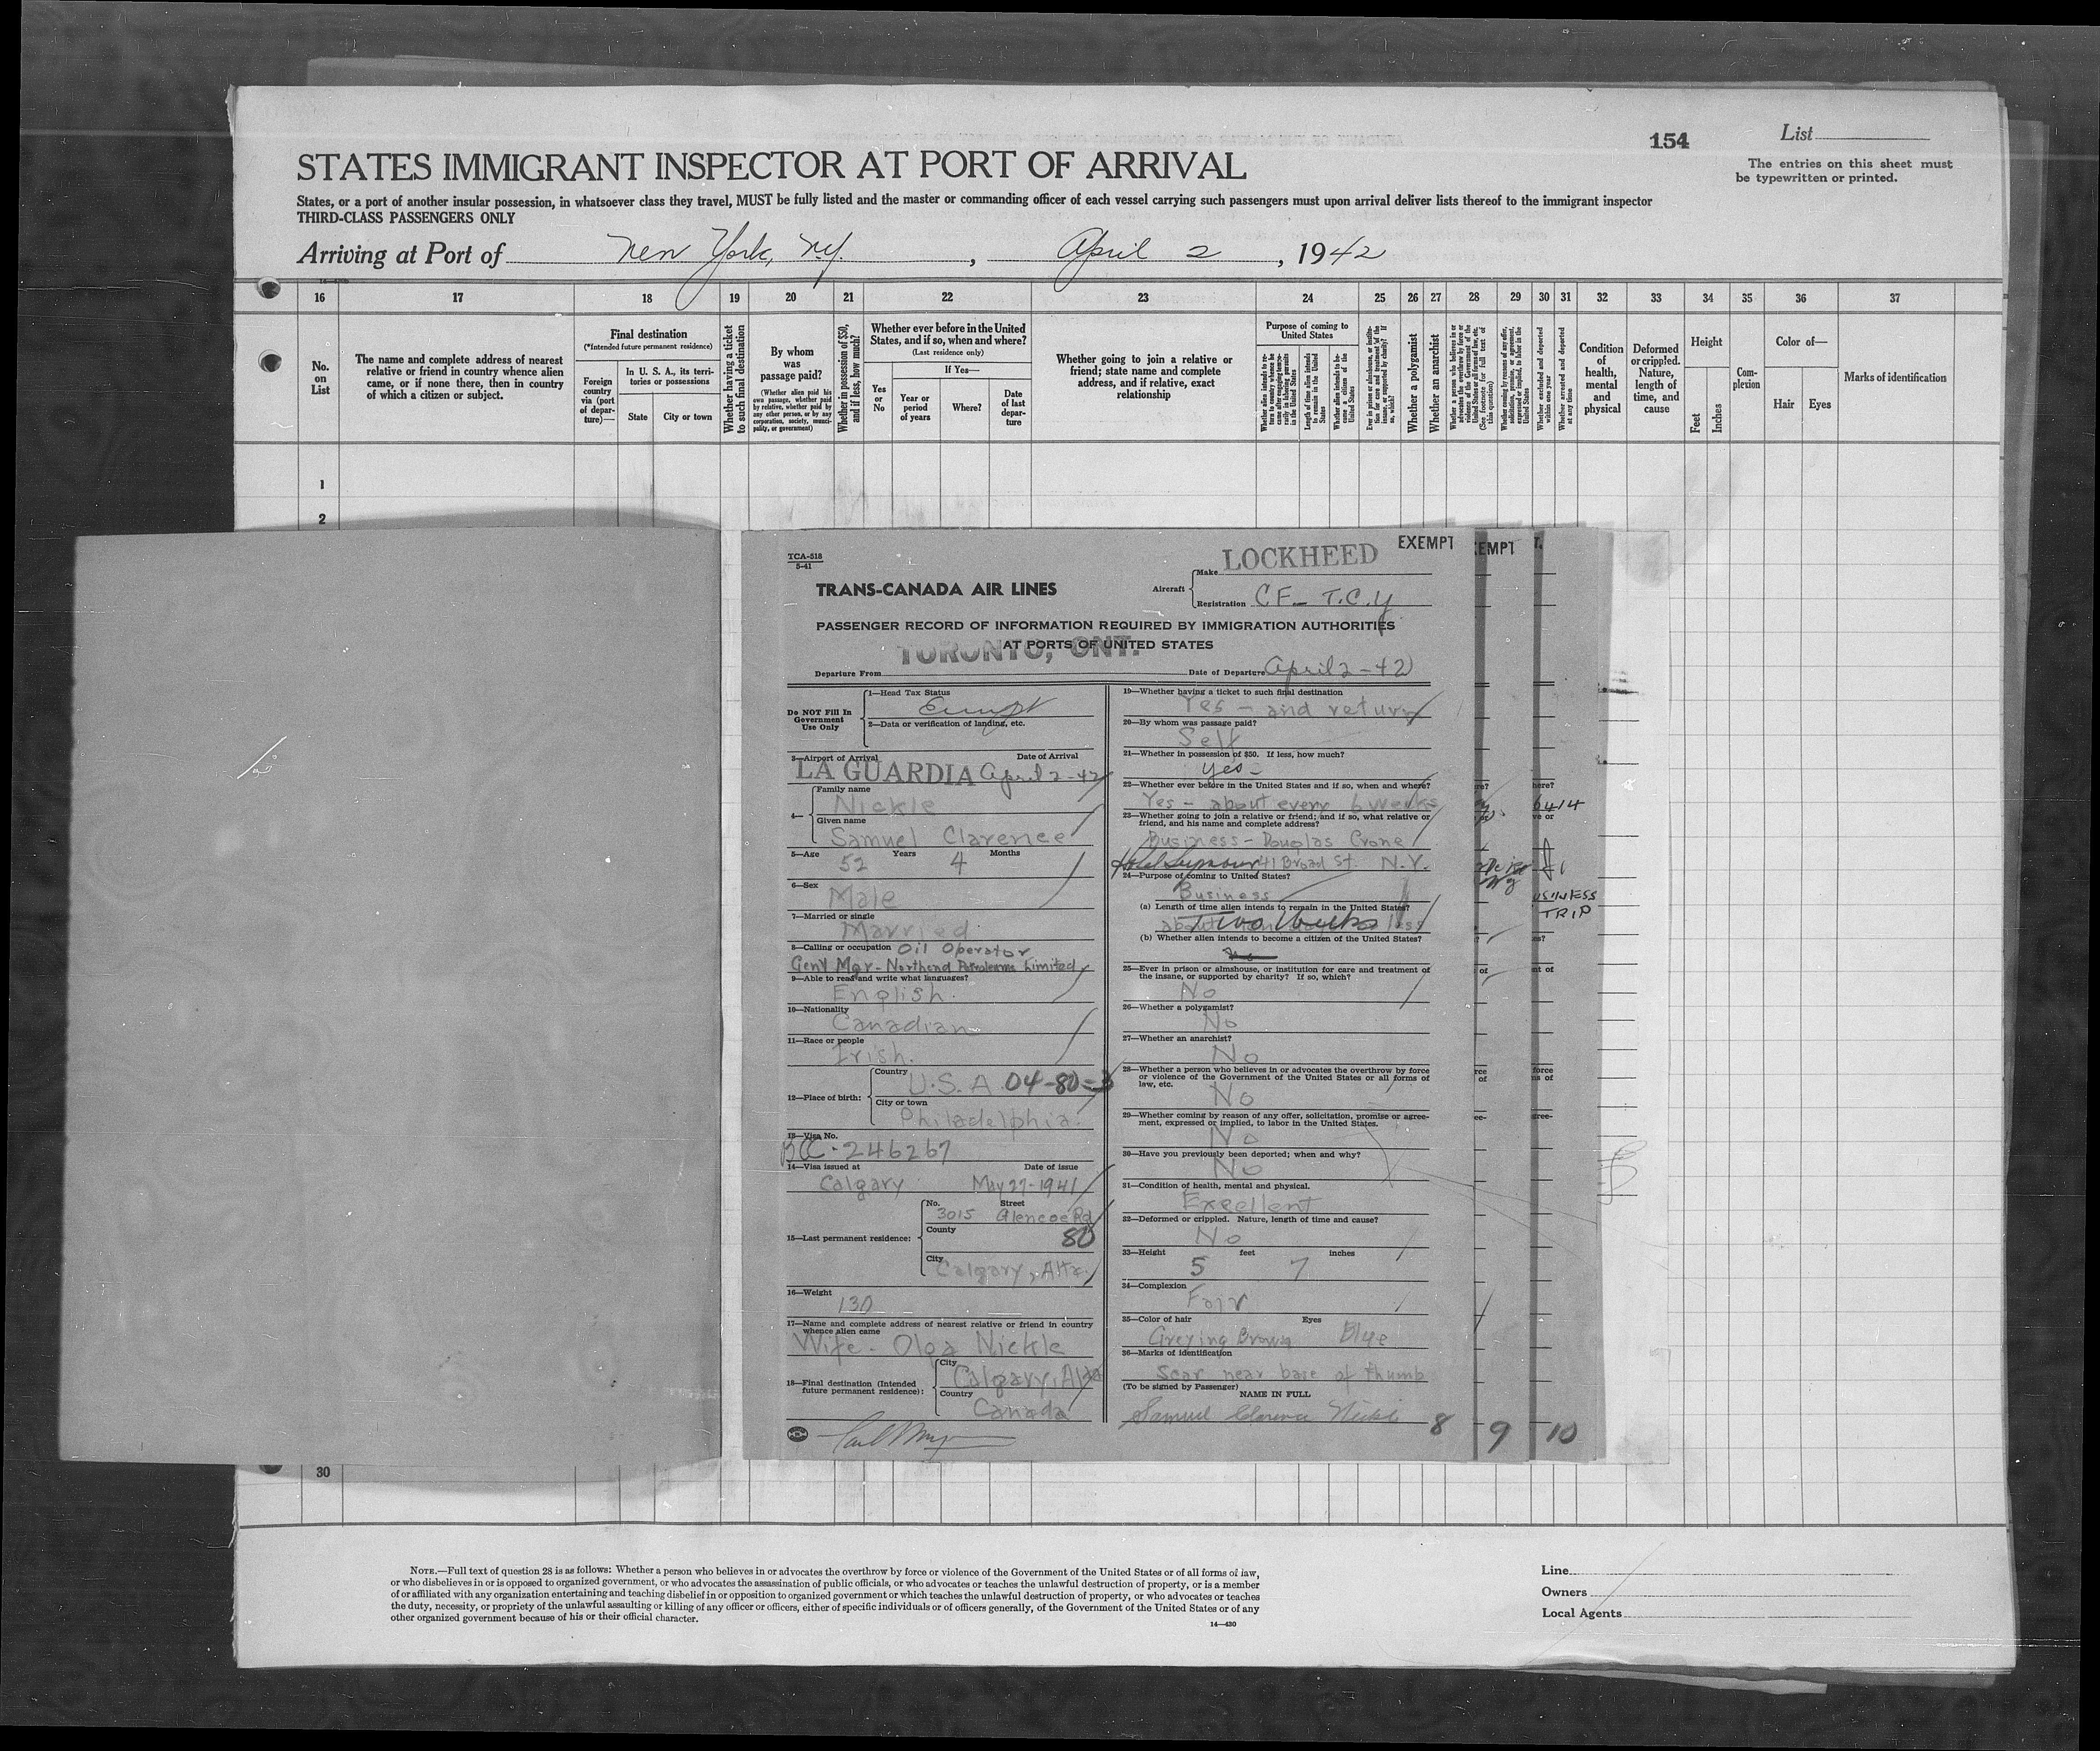 154
List
The entries on this sheet must
be typewritten or printed.
STATES IMMIGRANT INSPECTOR AT PORT OF ARRIVAL
States, or a port of another insular possession, in whatsoever class they travel, MUST be fully listed and the master or commanding officer of each vessel carrying such passengers must upon arrival deliver lists thereof to the immigrant inspector
THIRD-CLASS PASSENGERS ONLY
Arriving at Port of New York, N.Y., April 2, 1942
16 17 18 19 20 21 22 23 24 25 26 27 28 29 30 31 32 33 34 35 36 37
No.
on
List
The name and complete address of nearest
relative or friend in country whence alien
came, or if none there, then in country
of which a citizen or subject.
Final destination
(*Intended future permanent residence)
Foreign
country
via (port
of depar-
ture)—
In U. S. A., its terri-
tories or possessions
State
City or town
Whether having a ticket
to such final destination
By whom
was
passage paid?
(Whether alien paid his
own passage, whether paid
by relative, whether paid by
any other person, or by any
corporation, society, munici-
pality, or government)
Whether in possession of $50,
and if less, how much?
Whether ever before in the United
States, and if so, when and where?
(Last residence only)
Yes
or
No
If Yes—
Year or
period
of years
Where?
Date
of last
depar-
ture
Whether going to join a relative or
friend; state name and complete
address, and if relative, exact
relationship
Purpose of coming to
United States
Whether alien intends to re-
turn to country whence he
came after engaging tempo-
rarily in laboring pursuits
in the United States
Length of time alien intends
to remain in the United
States
Whether alien intends to be-
come a citizen of the
United States
Ever in prison or almshouse, or institu-
tion for care and treatment of the
insane, or supported by charity? If
so, which?
Whether a polygamist
Whether an anarchist
Whether a person who believes in or
advocates the overthrow by force or
violence of the Government of the
United States or all forms of law, etc.
(See footnote for full text of
this question)
Whether coming by reason of any offer,
solicitation, promise, or agreement,
expressed or implied, to labor in the
United States
Whether ever excluded and deported
within one year
Whether arrested and deported
at any time
Condition
of
health,
mental
and
physical
Deformed
or crippled.
Nature,
length of
time, and
cause
Height
Feet
Inches
Com-
plexion
Color of—
Hair
Eyes
Marks of identification
1
2
TCA-518
5-41
TRANS-CANADA AIR LINES
Aircraft
Make LOCKHEED
EXEMPT
Registration CF- T.C.Y
PASSENGER RECORD OF INFORMATION REQUIRED BY IMMIGRATION AUTHORITIES
AT PORTS OF UNITED STATES
Departure From TORONTO, ONT.
Date of Departure April 2-42
Do NOT Fill In
Government
Use Only
1—Head Tax Status
Exempt
2—Data or verification of landing, etc.
3—Airport of Arrival Date of Arrival
LA GUARDIA April 2-42
4—
Family name
Nickle
Given name
Samuel Clarence
5—Age 52 Years 4 Months
6—Sex
Male
7—Married or single
Married
8—Calling or occupation Oil Operator
Genl Mgr - Northend Petroleums Limited
9—Able to read and write what languages?
English.
10—Nationality
Canadian
11—Race or people
Irish.
12—Place of birth:
Country
U.S.A 04-80=3
City or town
Philadelphia.
13—Visa No.
BCC-246267
14—Visa issued at Date of issue
Calgary May 27-1941
15—Last permanent residence:
No. Street
3015 Glencoe Rd
County
80
City
Calgary, Alta.
16—Weight
130
17—Name and complete address of nearest relative or friend in country
whence alien came
Wife - Olga Nickle
18—Final destination (Intended
future permanent residence):
City
Calgary, Alta
Country
Canada
19—Whether having a ticket to such final destination
Yes - and return
20—By whom was passage paid?
Self
21—Whether in possession of $50. If less, how much?
yes-
22—Whether ever before in the United States and if so, when and where?
Yes - about every 6 weeks
23—Whether going to join a relative or friend; and if so, what relative or
friend, and his name and complete address?
Business - Douglas Crone
Hotel Seymour 41 Broad St. N.Y.
24—Purpose of coming to United States?
Business
(a) Length of time alien intends to remain in the United States?
Two Weeks
(b) Whether alien intends to become a citizen of the United States?
no
25—Ever in prison or almshouse, or institution for care and treatment of
the insane, or supported by charity? If so, which?
No
26—Whether a polygamist?
No
27—Whether an anarchist?
No
28—Whether a person who believes in or advocates the overthrow by force
or violence of the Government of the United States or all forms of
law, etc.
No
29—Whether coming by reason of any offer, solicitation, promise or agree-
ment, expressed or implied, to labor in the United States.
No
30—Have you previously been deported; when and why?
No
31—Condition of health, mental and physical.
Excellent
32—Deformed or crippled. Nature, length of time and cause?
No
33—Height feet inches
5 7
34—Complexion
Fair
35—Color of hair Eyes
Greying Brown Blue
36—Marks of identification
Scar near base of thumb
(To be signed by Passenger)
NAME IN FULL
Samuel Clarence Nickle
8
9
10
EMPT
T.
here?
6414
ve or
USINESS
TRIP
nt of
force
ms of
gree-
30
NOTE.—Full text of question 28 is as follows: Whether a person who believes in or advocates the overthrow by force or violence of the Government of the United States or of all forms of law,
or who disbelieves in or is opposed to organized government, or who advocates the assassination of public officials, or who advocates or teaches the unlawful destruction of property, or is a member
of or affiliated with any organization entertaining and teaching disbelief in or opposition to organized government or which teaches the unlawful destruction of property, or who advocates or teaches
the duty, necessity, or propriety of the unlawful assaulting or killing of any officer or officers, either of specific individuals or of officers generally, of the Government of the United States or of any
other organized government because of his or their official character.
14—430
Line
Owners
Local Agents